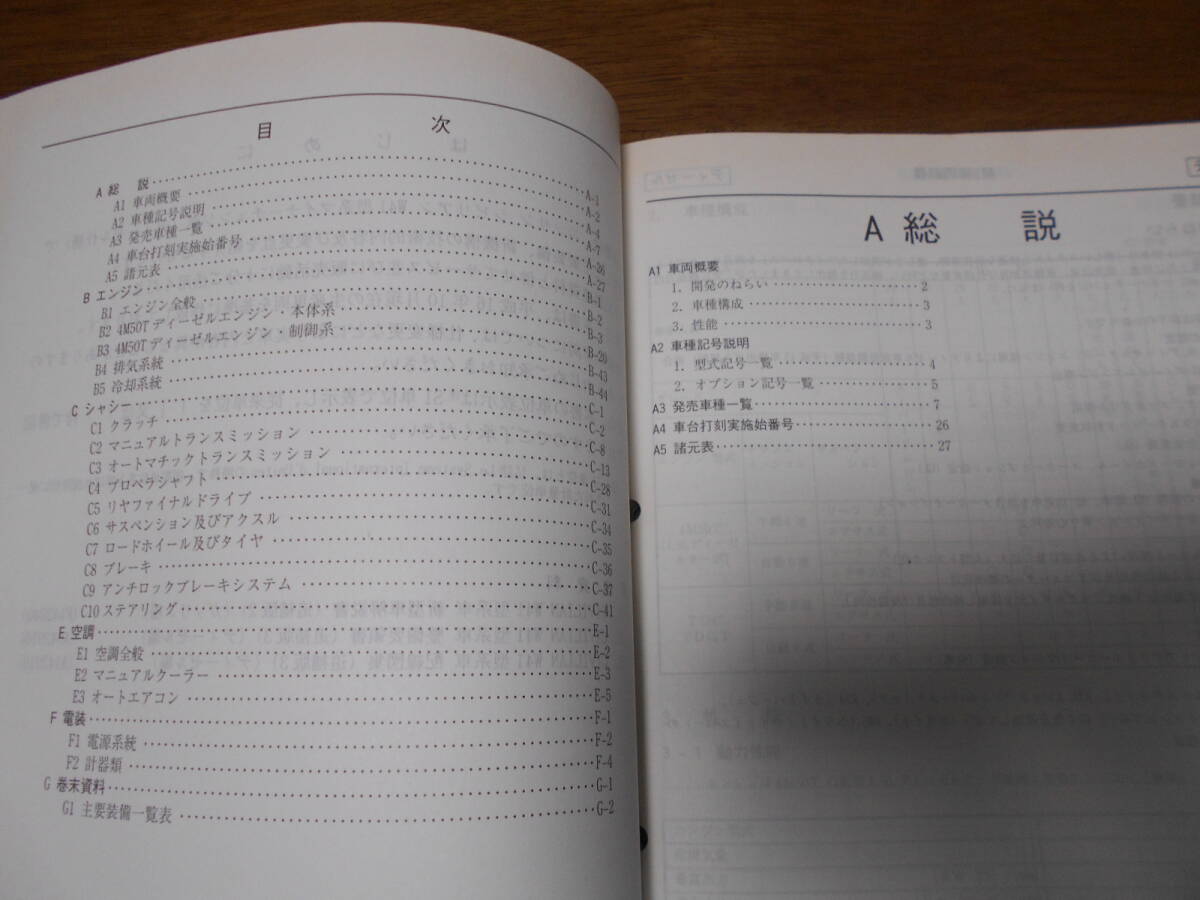 目 次
A 総 説 A-1
A1 車両概要 A-2
A2 車種記号説明 A-4
A3 発売車種一覧 A-7
A4 車台打刻実施始番号 A-26
A5 諸元表 A-27
B エンジン B-1
B1 エンジン全般 B-2
B2 4M50Tディーゼルエンジン・本体系 B-3
B3 4M50Tディーゼルエンジン・制御系 B-20
B4 排気系統 B-43
B5 冷却系統 B-44
C シャシー C-1
C1 クラッチ C-2
C2 マニュアルトランスミッション C-8
C3 オートマチックトランスミッション C-13
C4 プロペラシャフト C-28
C5 リヤファイナルドライブ C-31
C6 サスペンション及びアクスル C-34
C7 ロードホイール及びタイヤ C-35
C8 ブレーキ C-36
C9 アンチロックブレーキシステム C-37
C10 ステアリング C-41
E 空調 E-1
E1 空調全般 E-2
E2 マニュアルクーラー E-3
E3 オートエアコン E-5
F 電装 F-1
F1 電源系統 F-2
F2 計器類 F-4
G 巻末資料 G-1
G1 主要装備一覧表 G-2
A 総 説
A1 車両概要
1. 開発のねらい 2
2. 車種構成 3
3. 性能 3
A2 車種記号説明
1. 型式記号一覧 4
2. オプション記号一覧 5
A3 発売車種一覧 7
A4 車台打刻実施始番号 26
A5 諸元表 27